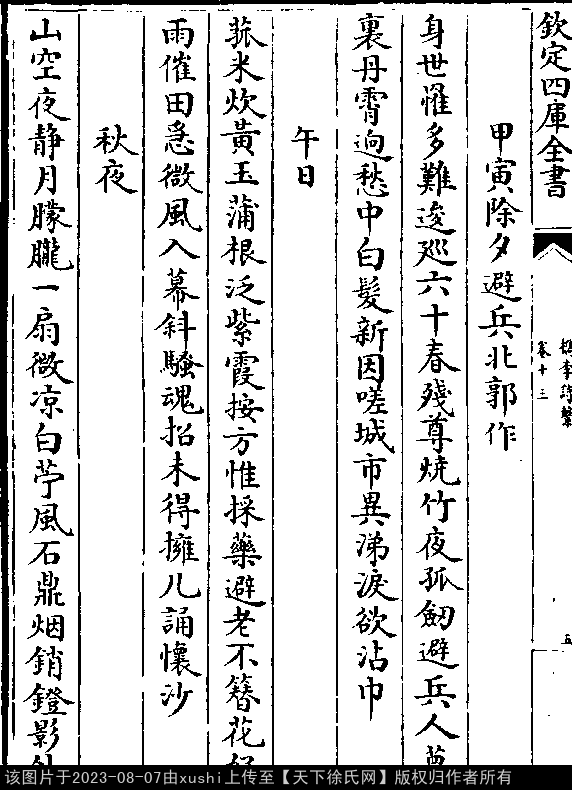 欽定四庫全書
卷十三
五
甲寅除夕避兵北郭作
身世罹多難逡廵六十春殘尊燒竹夜孤劒避兵人
裏丹霄逈愁中白髮新因嗟城市異涕淚欲沾巾
午日
菰米炊黃玉蒲根泛紫霞按方惟採藥避老不簪花
雨催田急微風入幕斜騷魂招未得擁几誦懷沙
秋夜
山空夜静月朦朧一扇微凉白苧風石鼎烟銷鐙影
该图片于2023-08-07由xushi上传至【天下徐氏网】版权归作者所有